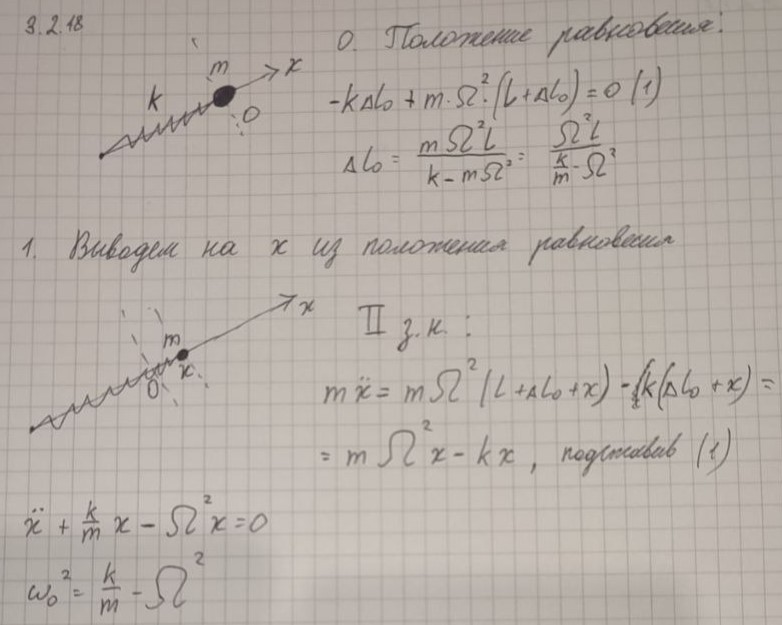 3.2.18
0. Положение равновесия:
k
m
x
O
-kΔl₀ + m·Ω²·(L+Δl₀) = 0 (1)
Δl₀ = mΩ²L / (k - mΩ²) = Ω²L / (k/m - Ω²)
1. Виводем на x из положения равновесия
m
x
O
x
II з.н.:
mẍ = mΩ²(L+Δl₀+x) - k(Δl₀+x) =
= mΩ²x - kx, подставив (1)
ẍ + k/m x - Ω²x = 0
ω₀² = k/m - Ω²